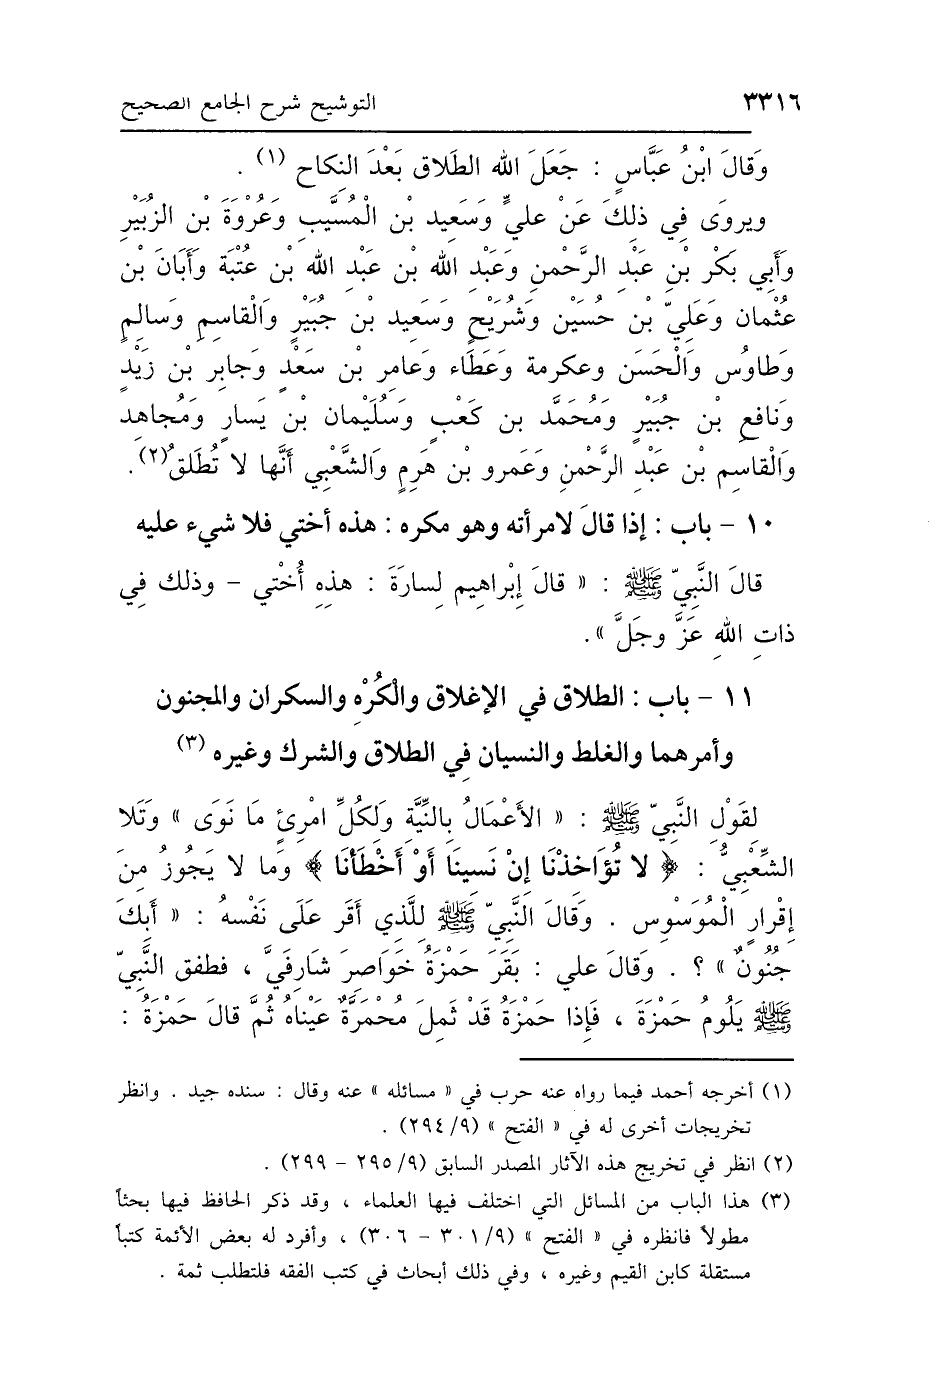 ٣٣١٦ التوشيح شرح الجامع الصحيح
وَقَالَ ابْنُ عَبَّاسٍ : جَعَلَ الله الطَلَاق بَعْدَ النكِاح (١) .
ويروَى فِي ذلكَ عَنْ عليٍّ وَسَعِيد بْنِ الْمُسَيَّبِ وَعُرْوَةَ بْنِ الزبَيْرِ
وَأَبِي بَكْرِ بْنِ عَبْدِ الرَّحْمنِ وَعَبْدِ الله بْنِ عَبْدِ الله بْنِ عتْبَةَ وَأَبَانَ بْنِ
عُثْمان وَعَلِيّ بْنِ حُسَيْن وَشُرَيْحٍ وَسَعِيد بْنِ جُبَيْرٍ وَالْقاسِمِ وَسالِمٍ
وَطاوُس وَالْحَسَن وعكرمة وَعَطَاء وَعامر بْنِ سَعْدٍ وَجابِر بْنِ زَيْدٍ
وَنافعِ بْنِ جُبَيْرٍ وَمُحَمَّد بن كَعْبٍ وَسُلَيْمان بْنِ يَسارٍ وَمُجاهد
وَالْقاسِم بْنِ عَبْدِ الرَّحْمنِ وَعَمرو بْنِ هَرِمٍ وَالشَّعْبي أَنَّها لا تُطَلَقُ(٢).
١٠ - باب : إذا قالَ لامرأته وهو مكره : هذه أختي فلا شيء عليه
قالَ النَّبِيّ ﷺ : « قالَ إِبْراهِيم لِسارَةَ : هذِهِ أُخْتي - وذلك فِي
ذاتِ اللهِ عَزَّ وجَلَّ ».
١١ - باب : الطلاق في الإغلاق والْكُرْهِ والسكران والمجنون
وأمرهما والغلط والنسيان فِي الطلاق والشرك وغيره (٣)
لِقَوْلِ النَّبِيّ ﷺ : « الأَعْمَالُ بِالنِّيَّةِ وَلِكُلِّ امْرِئٍ مَا نَوَى » وَتَلا
الشِّعْبِيُّ : ﴿ لا تُؤَاخذْنَا إِنْ نَسينَا أَوْ أَخْطَأْنَا ﴾ وَما لا يَجُوزُ مِنَ
إِقْرارِ الْمُوَسْوِس . وَقَالَ النَّبِيّ ﷺ للَّذِي أَقَر عَلَى نَفْسهُ : « أَبِكَ
جُنُونٌ » ؟ . وَقَالَ علي : بَقَرَ حَمْزَةُ خَوَاصِرَ شارِفَيَّ ، فطفق النَّبِيّ
ﷺ يَلُومُ حَمْزَةَ ، فَإِذا حَمْزَةُ قَدْ ثَمِلَ مُحْمَرَّةٌ عَيْناهُ ثُمَّ قالَ حَمْزَةُ :
(١) أخرجه أحمد فيما رواه عنه حرب في « مسائله » عنه وقال : سنده جيد . وانظر
تخريجات أخرى له في « الفتح » (٩/ ٢٩٤) .
(٢) انظر في تخريج هذه الآثار المصدر السابق (٩/ ٢٩٥ - ٢٩٩) .
(٣) هذا الباب من المسائل التي اختلف فيها العلماء ، وقد ذكر الحافظ فيها بحثاً
مطولاً فانظره في « الفتح » (٩/ ٣٠١ - ٣٠٦) ، وأفرد له بعض الأئمة كتباً
مستقلة كابن القيم وغيره ، وفي ذلك أبحاث في كتب الفقه فلتطلب ثمة .